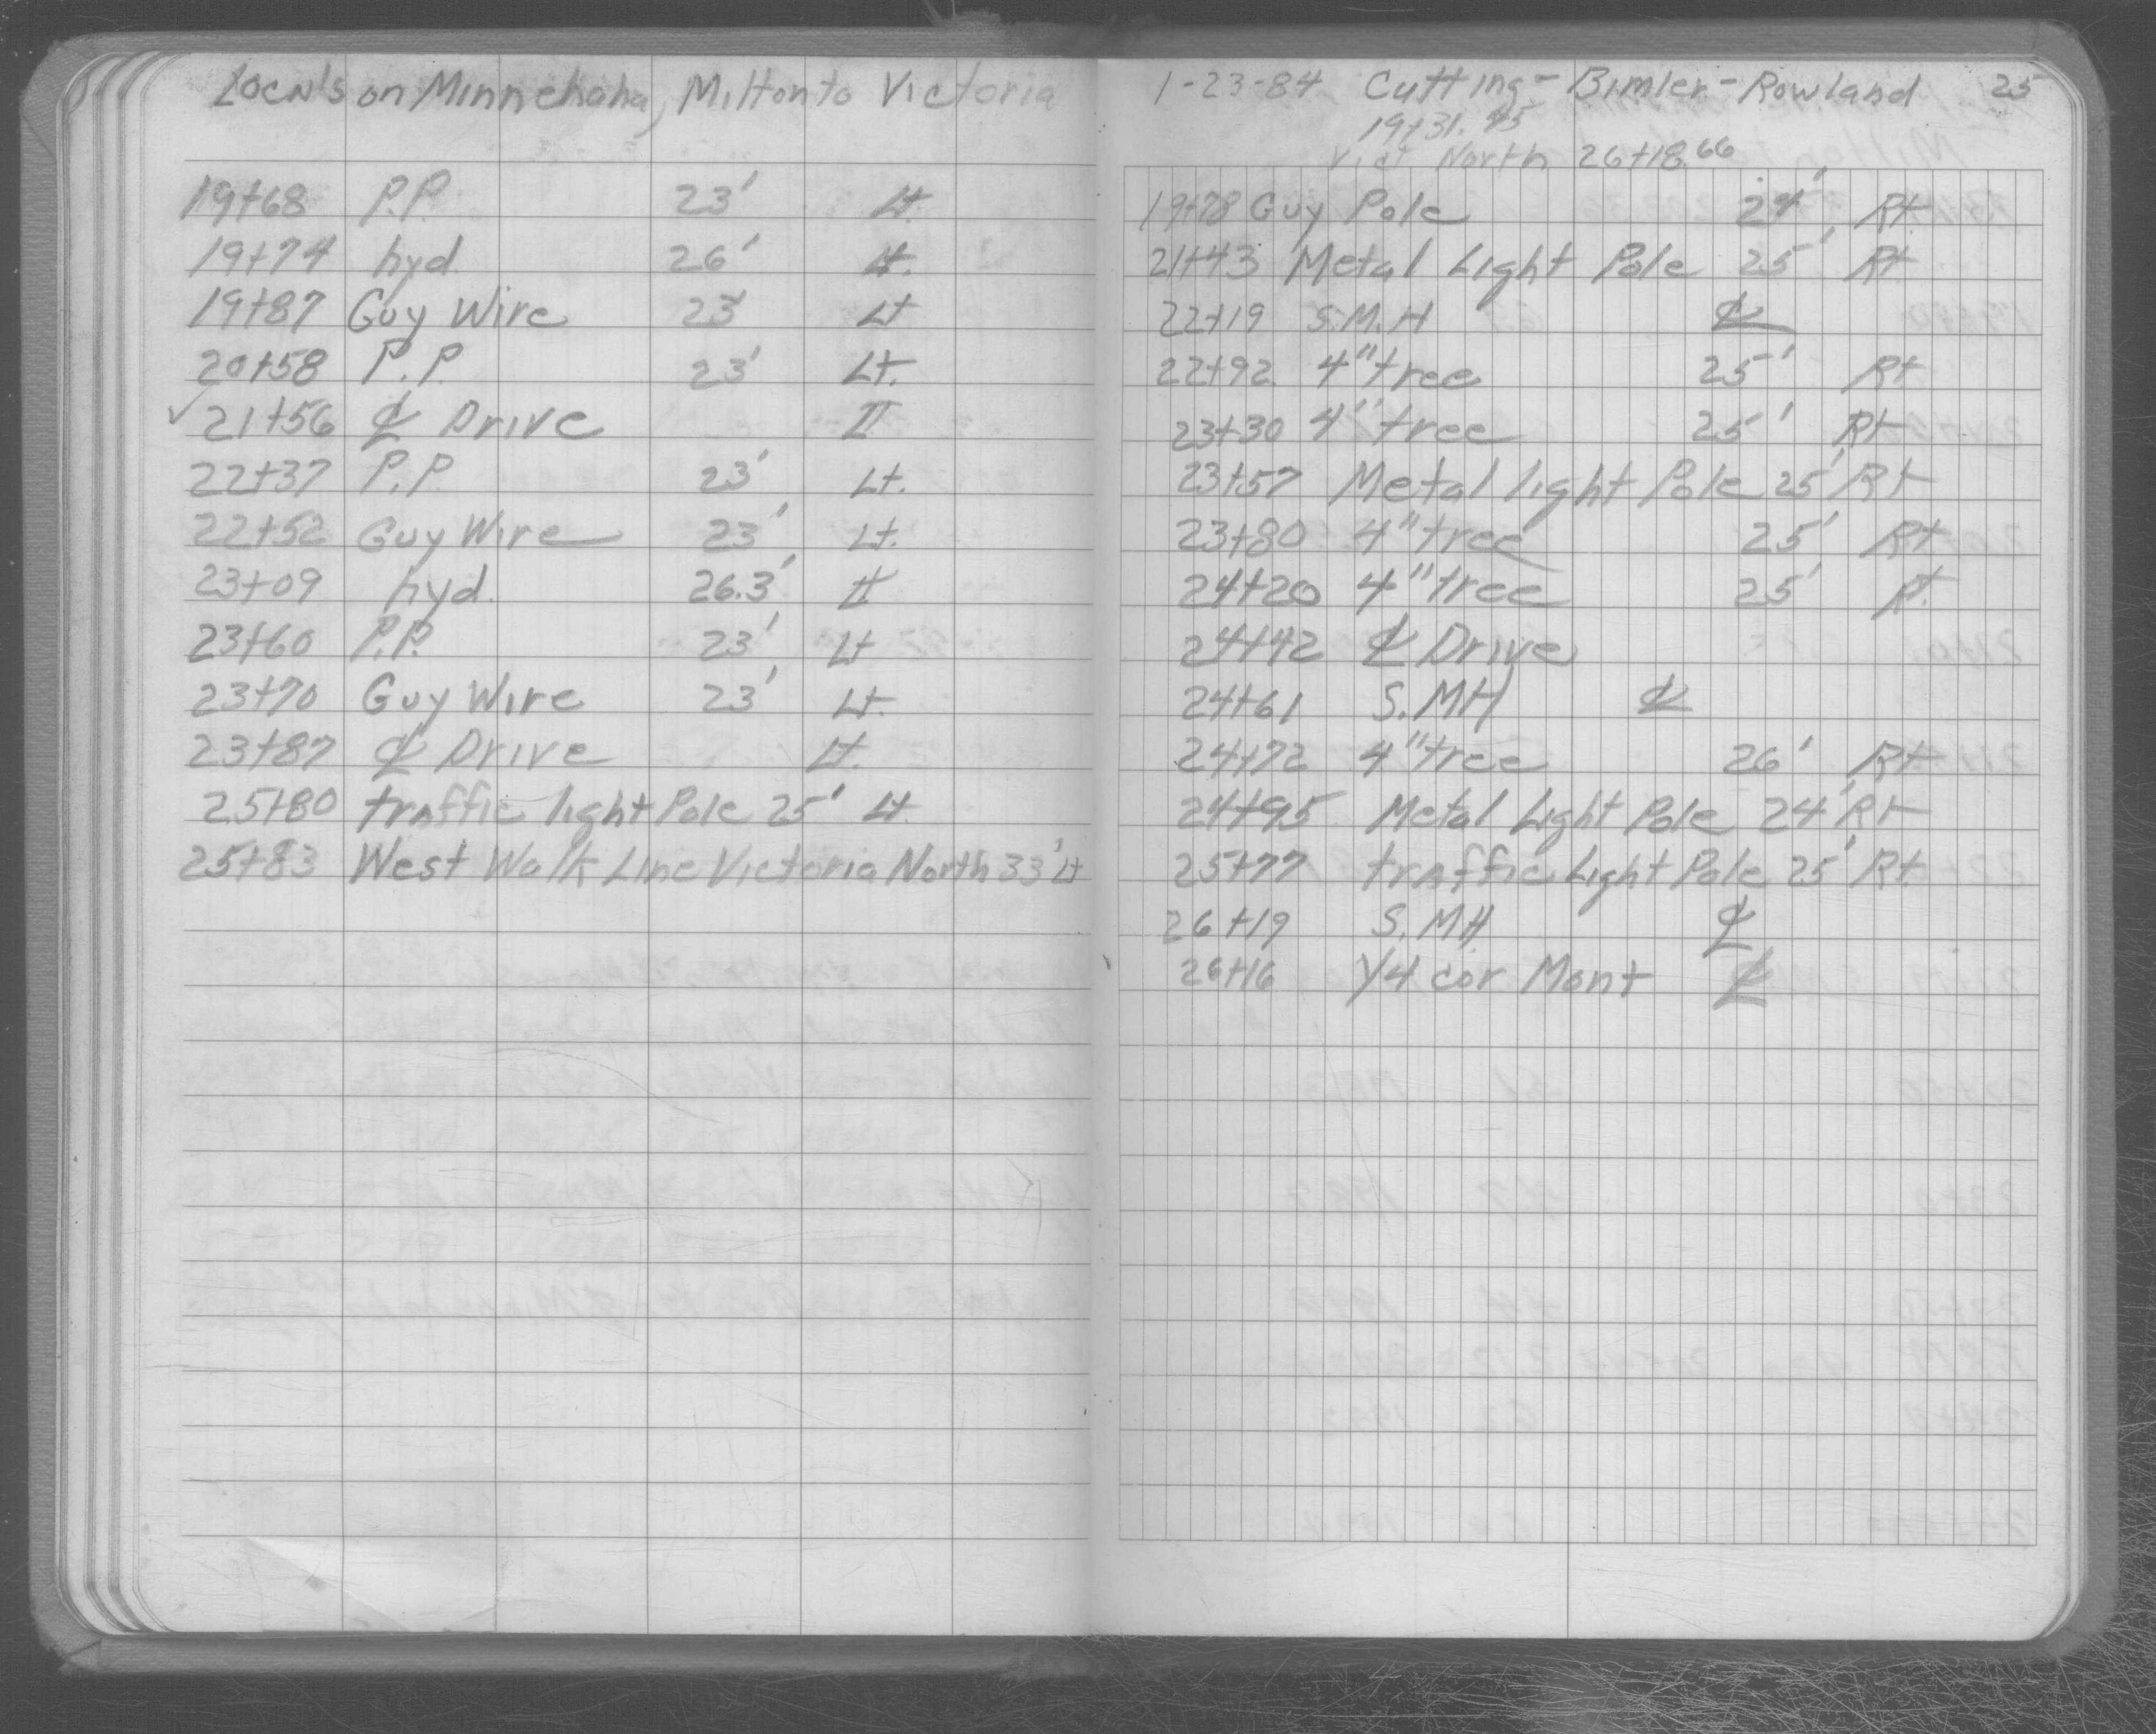 Locn's on Minnehaha, Milton to Victoria
19+68 P.P. 23' Lt.
19+74 hyd. 26' Lt.
19+87 Guy Wire 23' Lt
20+58 P.P. 23' Lt.
✓ 21+56 ℄ Drive Lt
22+37 P.P. 23' Lt.
22+52 Guy Wire 23' Lt.
23+09 hyd. 26.3' Lt
23+60 P.P. 23' Lt
23+70 Guy Wire 23' Lt.
23+87 ℄ Drive Lt.
25+80 traffic light Pole 25' Lt
25+83 West Walk Line Victoria North 33' Lt
1-23-84 Cutting - Bimler - Rowland 25
19+31.
Vict North 26+18.66
19+78 Guy Pole 24' Rt
21+43 Metal Light Pole 25' Rt
22+19 S.M.H ℄
22+92 4" tree 25' Rt
23+30 4" tree 25' Rt
23+57 Metal light Pole 25' Rt
23+80 4" tree 25' Rt
24+20 4" tree 25' Rt.
24+42 ℄ Drive
24+61 S.MH ℄
24+72 4" tree 26' Rt
24+95 Metal Light Pole 24' Rt
25+77 traffic Light Pole 25' Rt.
26+19 S.MH ℄
26+16 1/4 cor Mont ℄